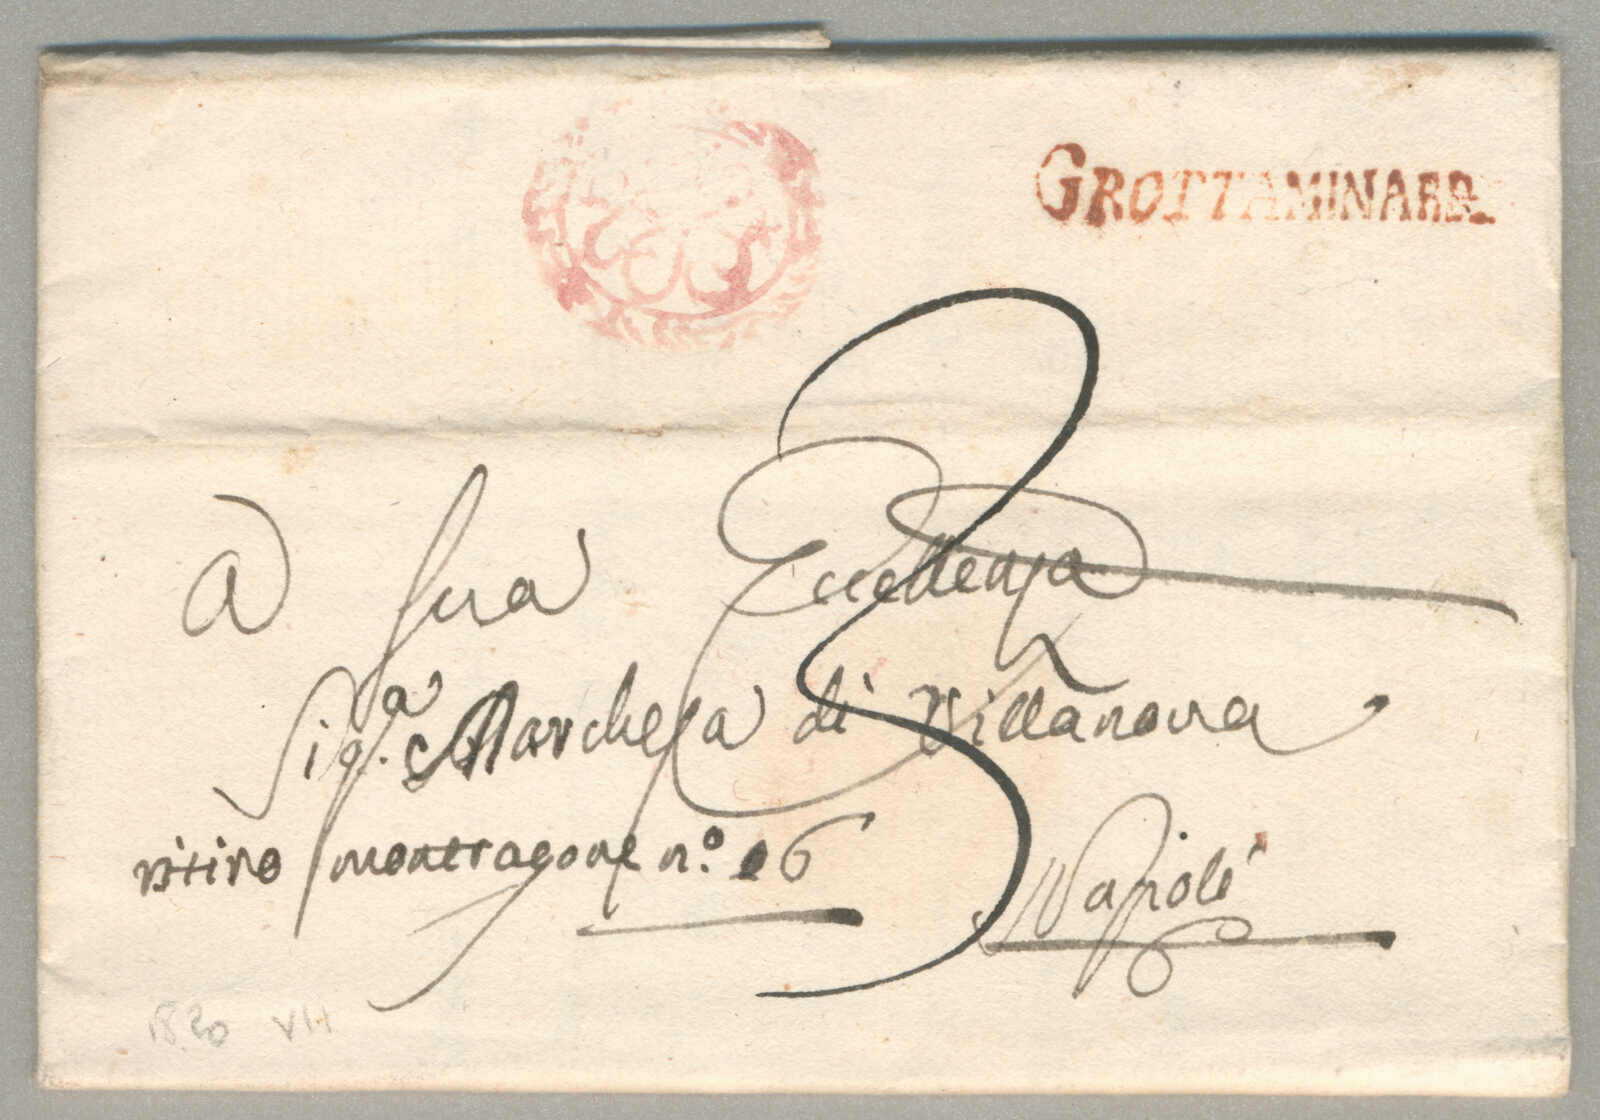 GROTTAMINARDA
3
A Sua Eccellenza
Sig.ª Marchesa di Villanova
vitino montragone n.º 16
Napoli
1820 VII